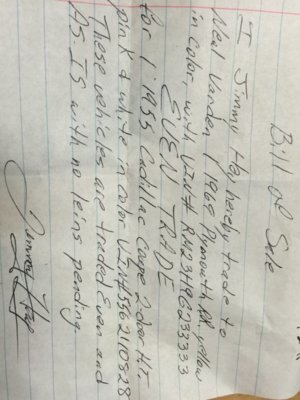 Bill of Sale
I Jimmy Hay hereby trade to
Neal Varden 1968 Plymouth RR yellow
in color, with VIN# RM23H8G233333
EVEN TRADE
for 1 1955 Cadillac Coupe 2 door H.T.
pink & white in color VIN# 556210828
These vehicles are traded Even and
AS. IS with no leins pending